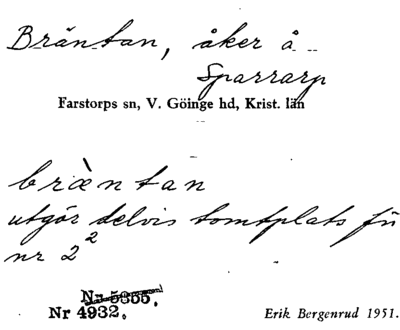 Bräntan, åker å
Sparrarp
Farstorps sn, V. Göinge hd, Krist. län
bräntan
utgör delvis tomtplats för
nr 2²
Nr 5355.
Nr 4932.
Erik Bergenrud 1951.